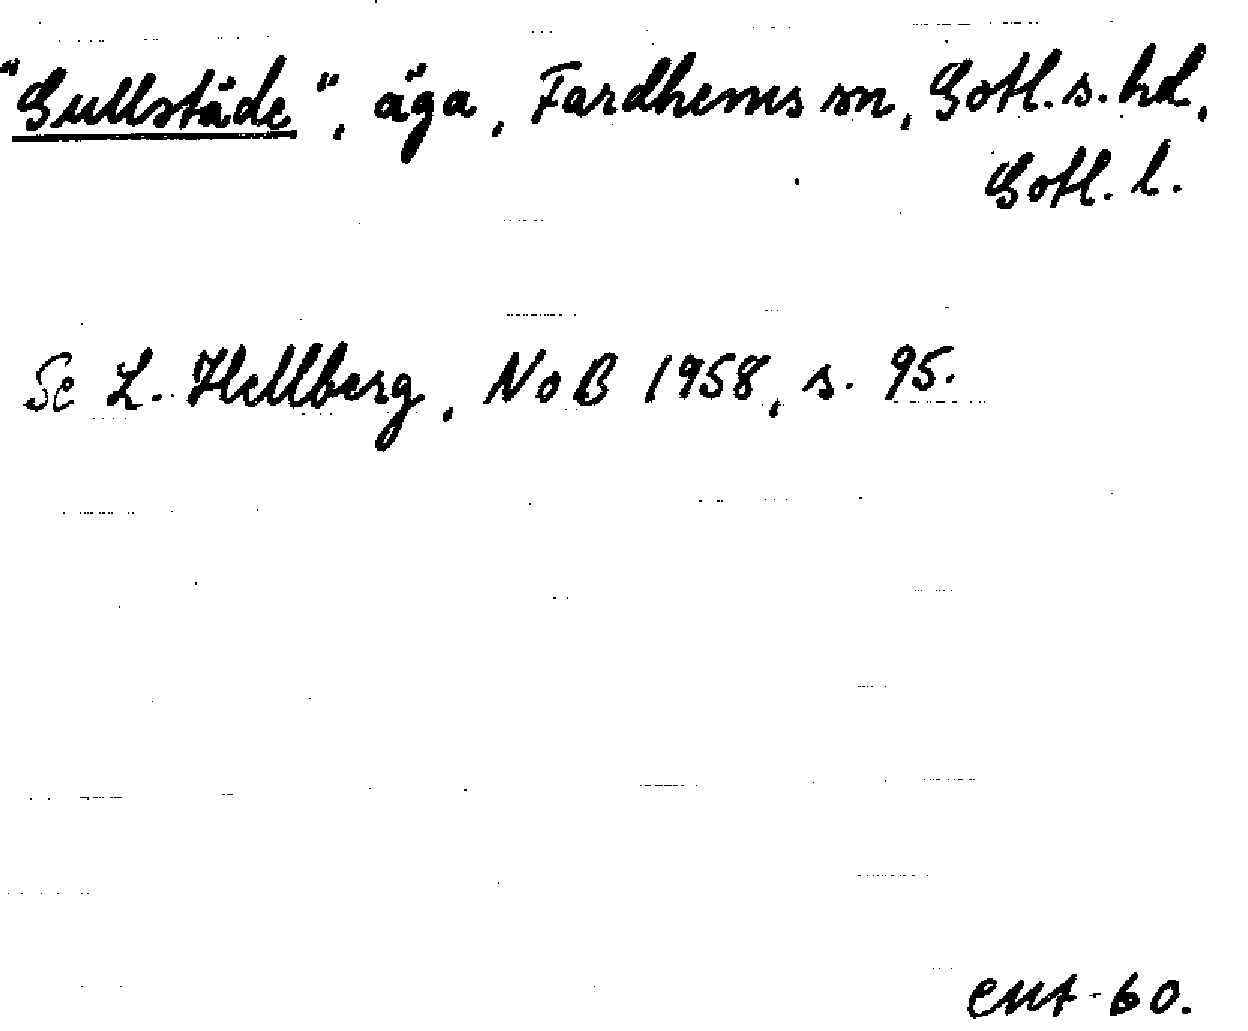 "Gullstäde", äga, Fardhems sn, Gotl. s. hd,
Gotl. l.
Se L. Hellberg, NoB 1958, s. 95.
-60.